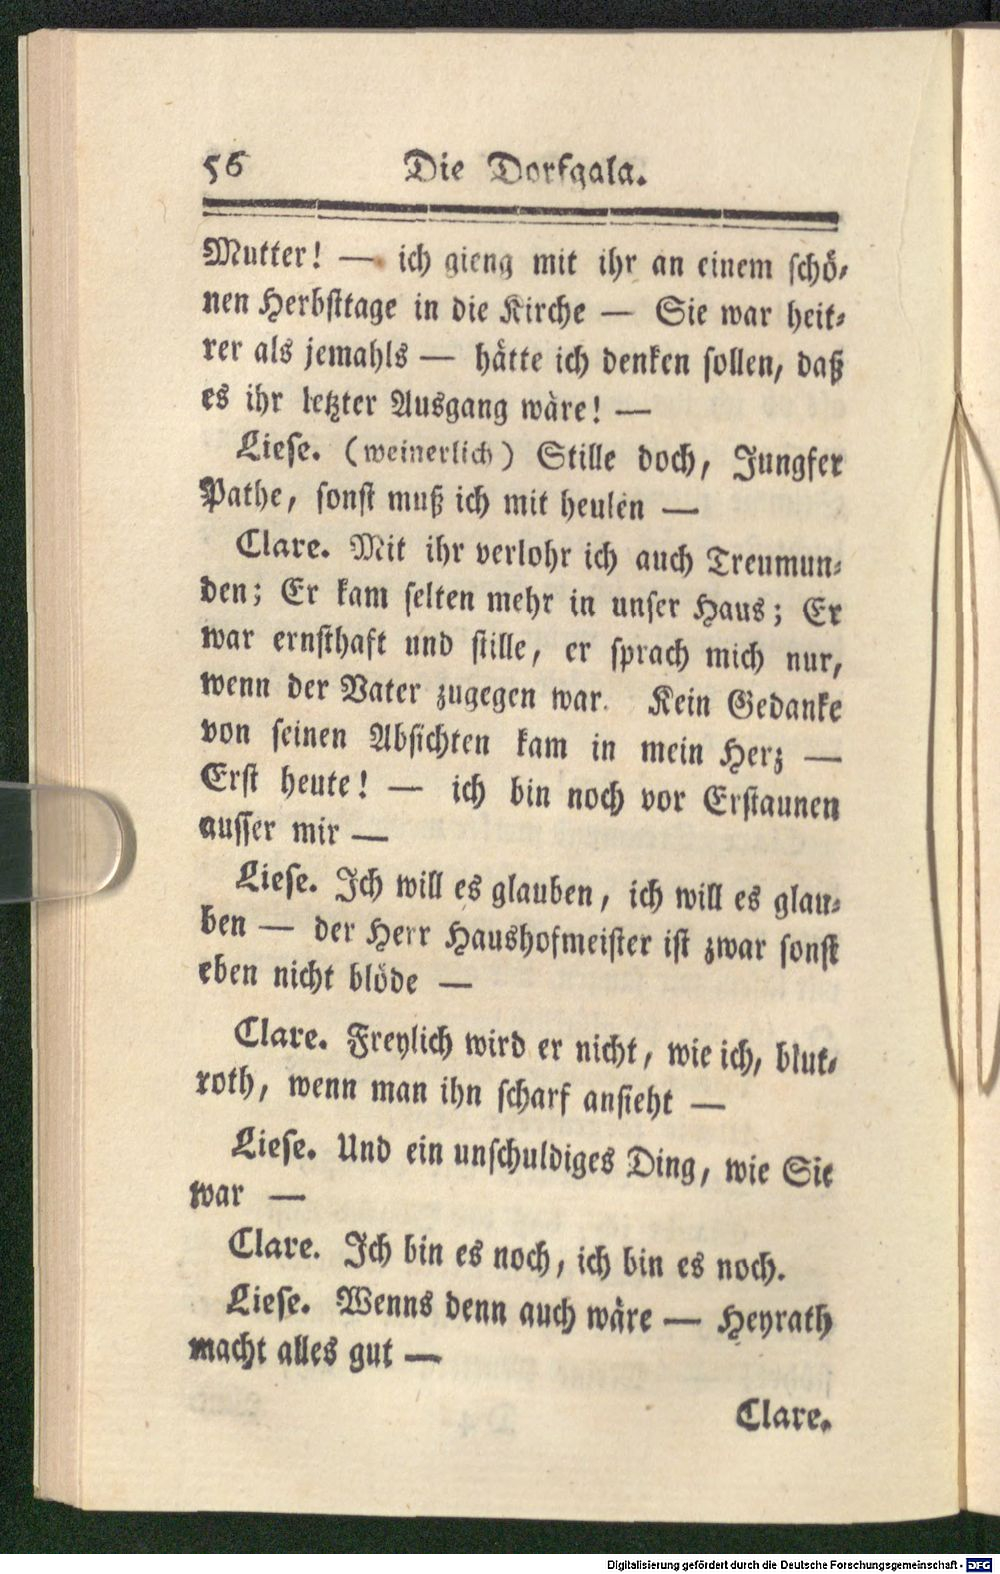 56 Die Dorfgala.
Mutter! — ich gieng mit ihr an einem schö-
nen Herbsttage in die Kirche — Sie war heit-
rer als jemahls — hätte ich denken sollen, daß
es ihr letzter Ausgang wäre! —
Liese. (weinerlich) Stille doch, Jungfer
Pathe, sonst muß ich mit heulen —
Clare. Mit ihr verlohr ich auch Treumun-
den; Er kam selten mehr in unser Haus; Er
war ernsthaft und stille, er sprach mich nur,
wenn der Vater zugegen war. Kein Gedanke
von seinen Absichten kam in mein Herz —
Erst heute! — ich bin noch vor Erstaunen
ausser mir —
Liese. Ich will es glauben, ich will es glau-
ben — der Herr Haushofmeister ist zwar sonst
eben nicht blöde —
Clare. Freylich wird er nicht, wie ich, blut-
roth, wenn man ihn scharf ansieht —
Liese. Und ein unschuldiges Ding, wie Sie
war —
Clare. Ich bin es noch, ich bin es noch.
Liese. Wenns denn auch wäre — Heyrath
macht alles gut —
Clare.
Digitalisierung gefördert durch die Deutsche Forschungsgemeinschaft - DFG